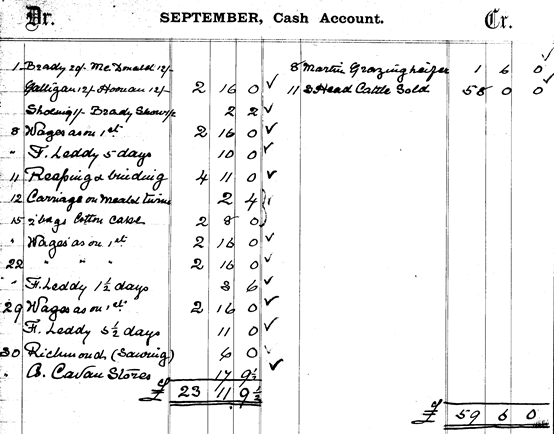 Dr. SEPTEMBER, Cash Account. Cr.
1 Brady 20/- McDonald 12/-
Galligan 12/- Hoenan 12/- 2 16 0 ✓
Shoeing 1/- Brady Show 1/2 2 2 ✓
8 Wages as on 1st 2 16 0 ✓
" F. Leddy 5 days 10 0 ✓
11 Reaping & binding 4 11 0 ✓
12 Carriage on Meal & 2 4
15 2 bags Cotton Cake 2 8 0
" Wages as on 1st 2 16 0 ✓
22 " " " 2 16 0 ✓
" F. Leddy 1½ days 3 6 ✓
29 Wages as on 1st 2 16 0 ✓
F. Leddy 5½ days 11 0 ✓
30 Richmond (Sawing) 6 0
" Cavan Stores 17 9½ ✓
£ 23 11 9½
8 Martin Grazing heifer 1 6 0 ✓
11 Head Cattle Sold 58 0 0 ✓
£ 59 6 0